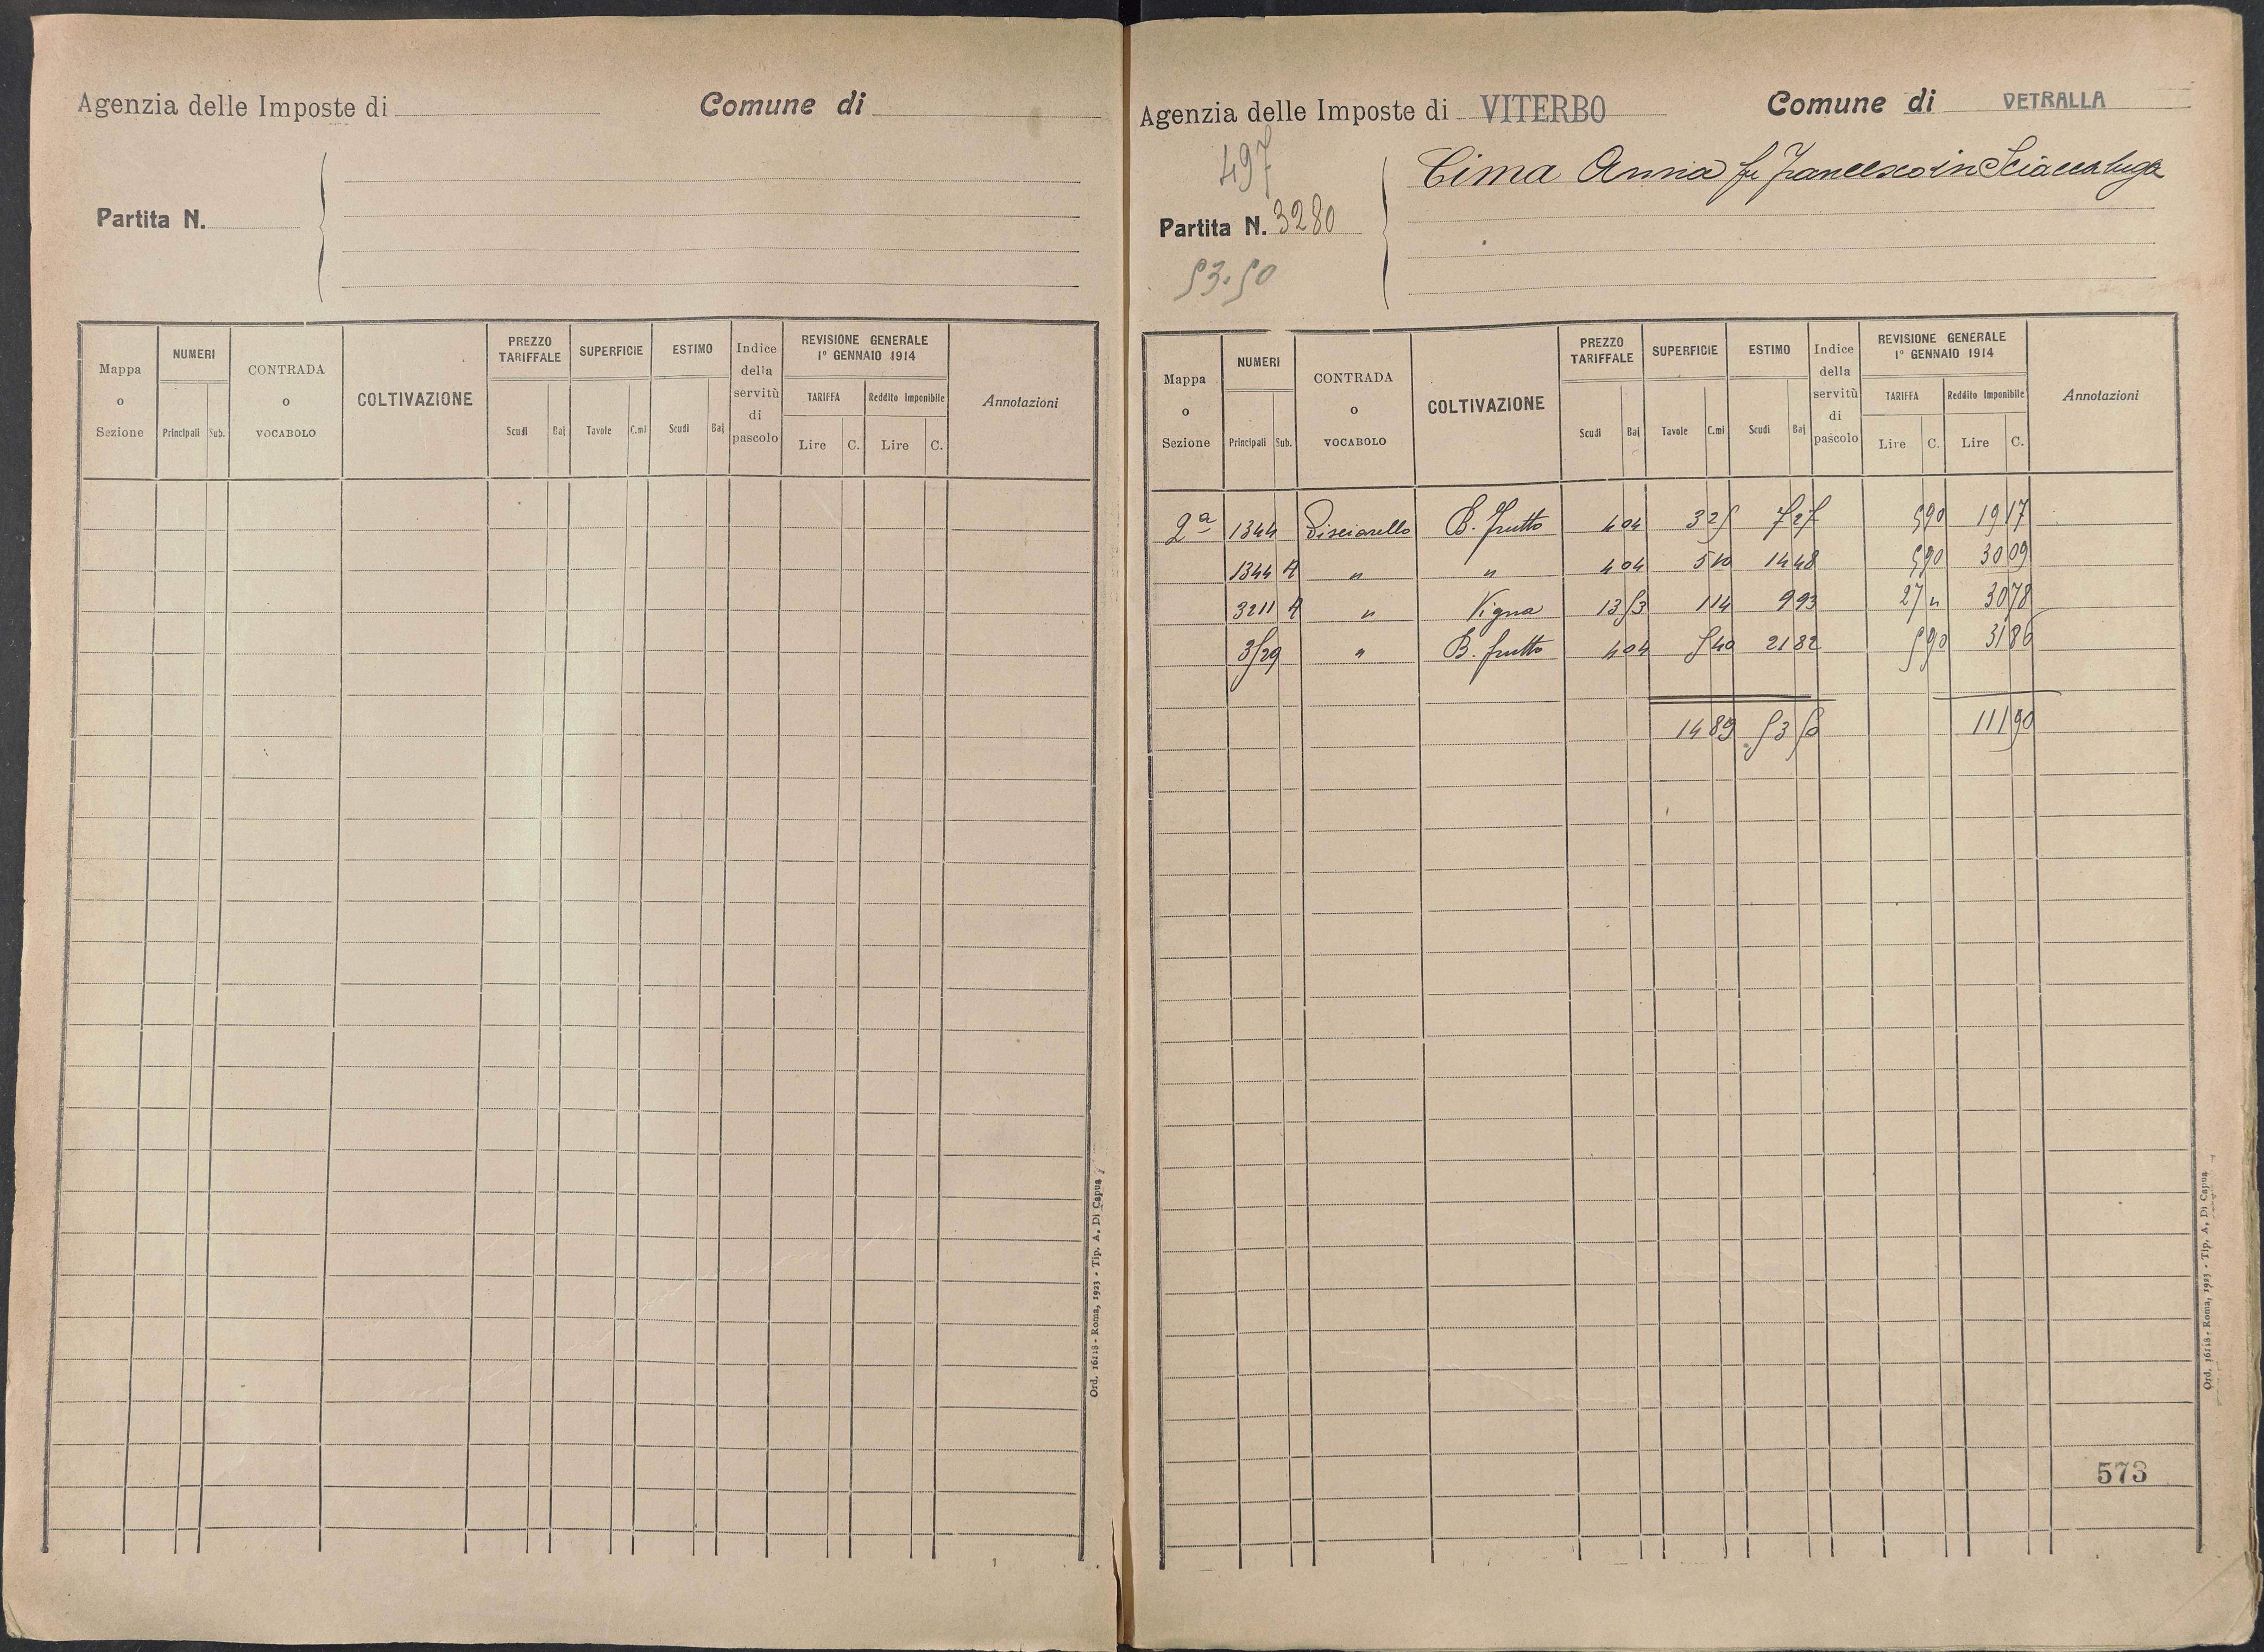 Agenzia delle Imposte di
Comune di
Partita N.
Mappa o Sezione
NUMERI
Principali Sub.
CONTRADA o VOCABOLO
COLTIVAZIONE
PREZZO TARIFFALE
Scudi Baj
SUPERFICIE
Tavole C.mi
ESTIMO
Scudi Baj
Indice della servitù di pascolo
REVISIONE GENERALE
1° GENNAIO 1914
TARIFFA Reddito Imponibile
Lire C. Lire C.
Annotazioni
Ord. 16118 - Roma, 1923 - Tip. A. Di Capua
Agenzia delle Imposte di VITERBO
Comune di VETRALLA
497
Partita N. 3280
53.50
Cima Anna fu Francesco in Sciaccaluga
Mappa o Sezione
NUMERI
Principali Sub.
CONTRADA o VOCABOLO
COLTIVAZIONE
PREZZO TARIFFALE
Scudi Baj
SUPERFICIE
Tavole C.mi
ESTIMO
Scudi Baj
Indice della servitù di pascolo
REVISIONE GENERALE
1° GENNAIO 1914
TARIFFA Reddito Imponibile
Lire C. Lire C.
Annotazioni
2ª 1344 Pisciarello B. frutto 4 04 3 25 7 27 5 90 19 17
1344 A " " 4 04 5 10 14 48 5 90 30 09
3211 A " Vigna 13 53 1 14 9 93 27 " 30 78
3529 " B. frutto 4 04 5 40 21 82 5 90 31 86
14 89 53 50 111 90
573
Ord. 16118 - Roma, 1923 - Tip. A. Di Capua